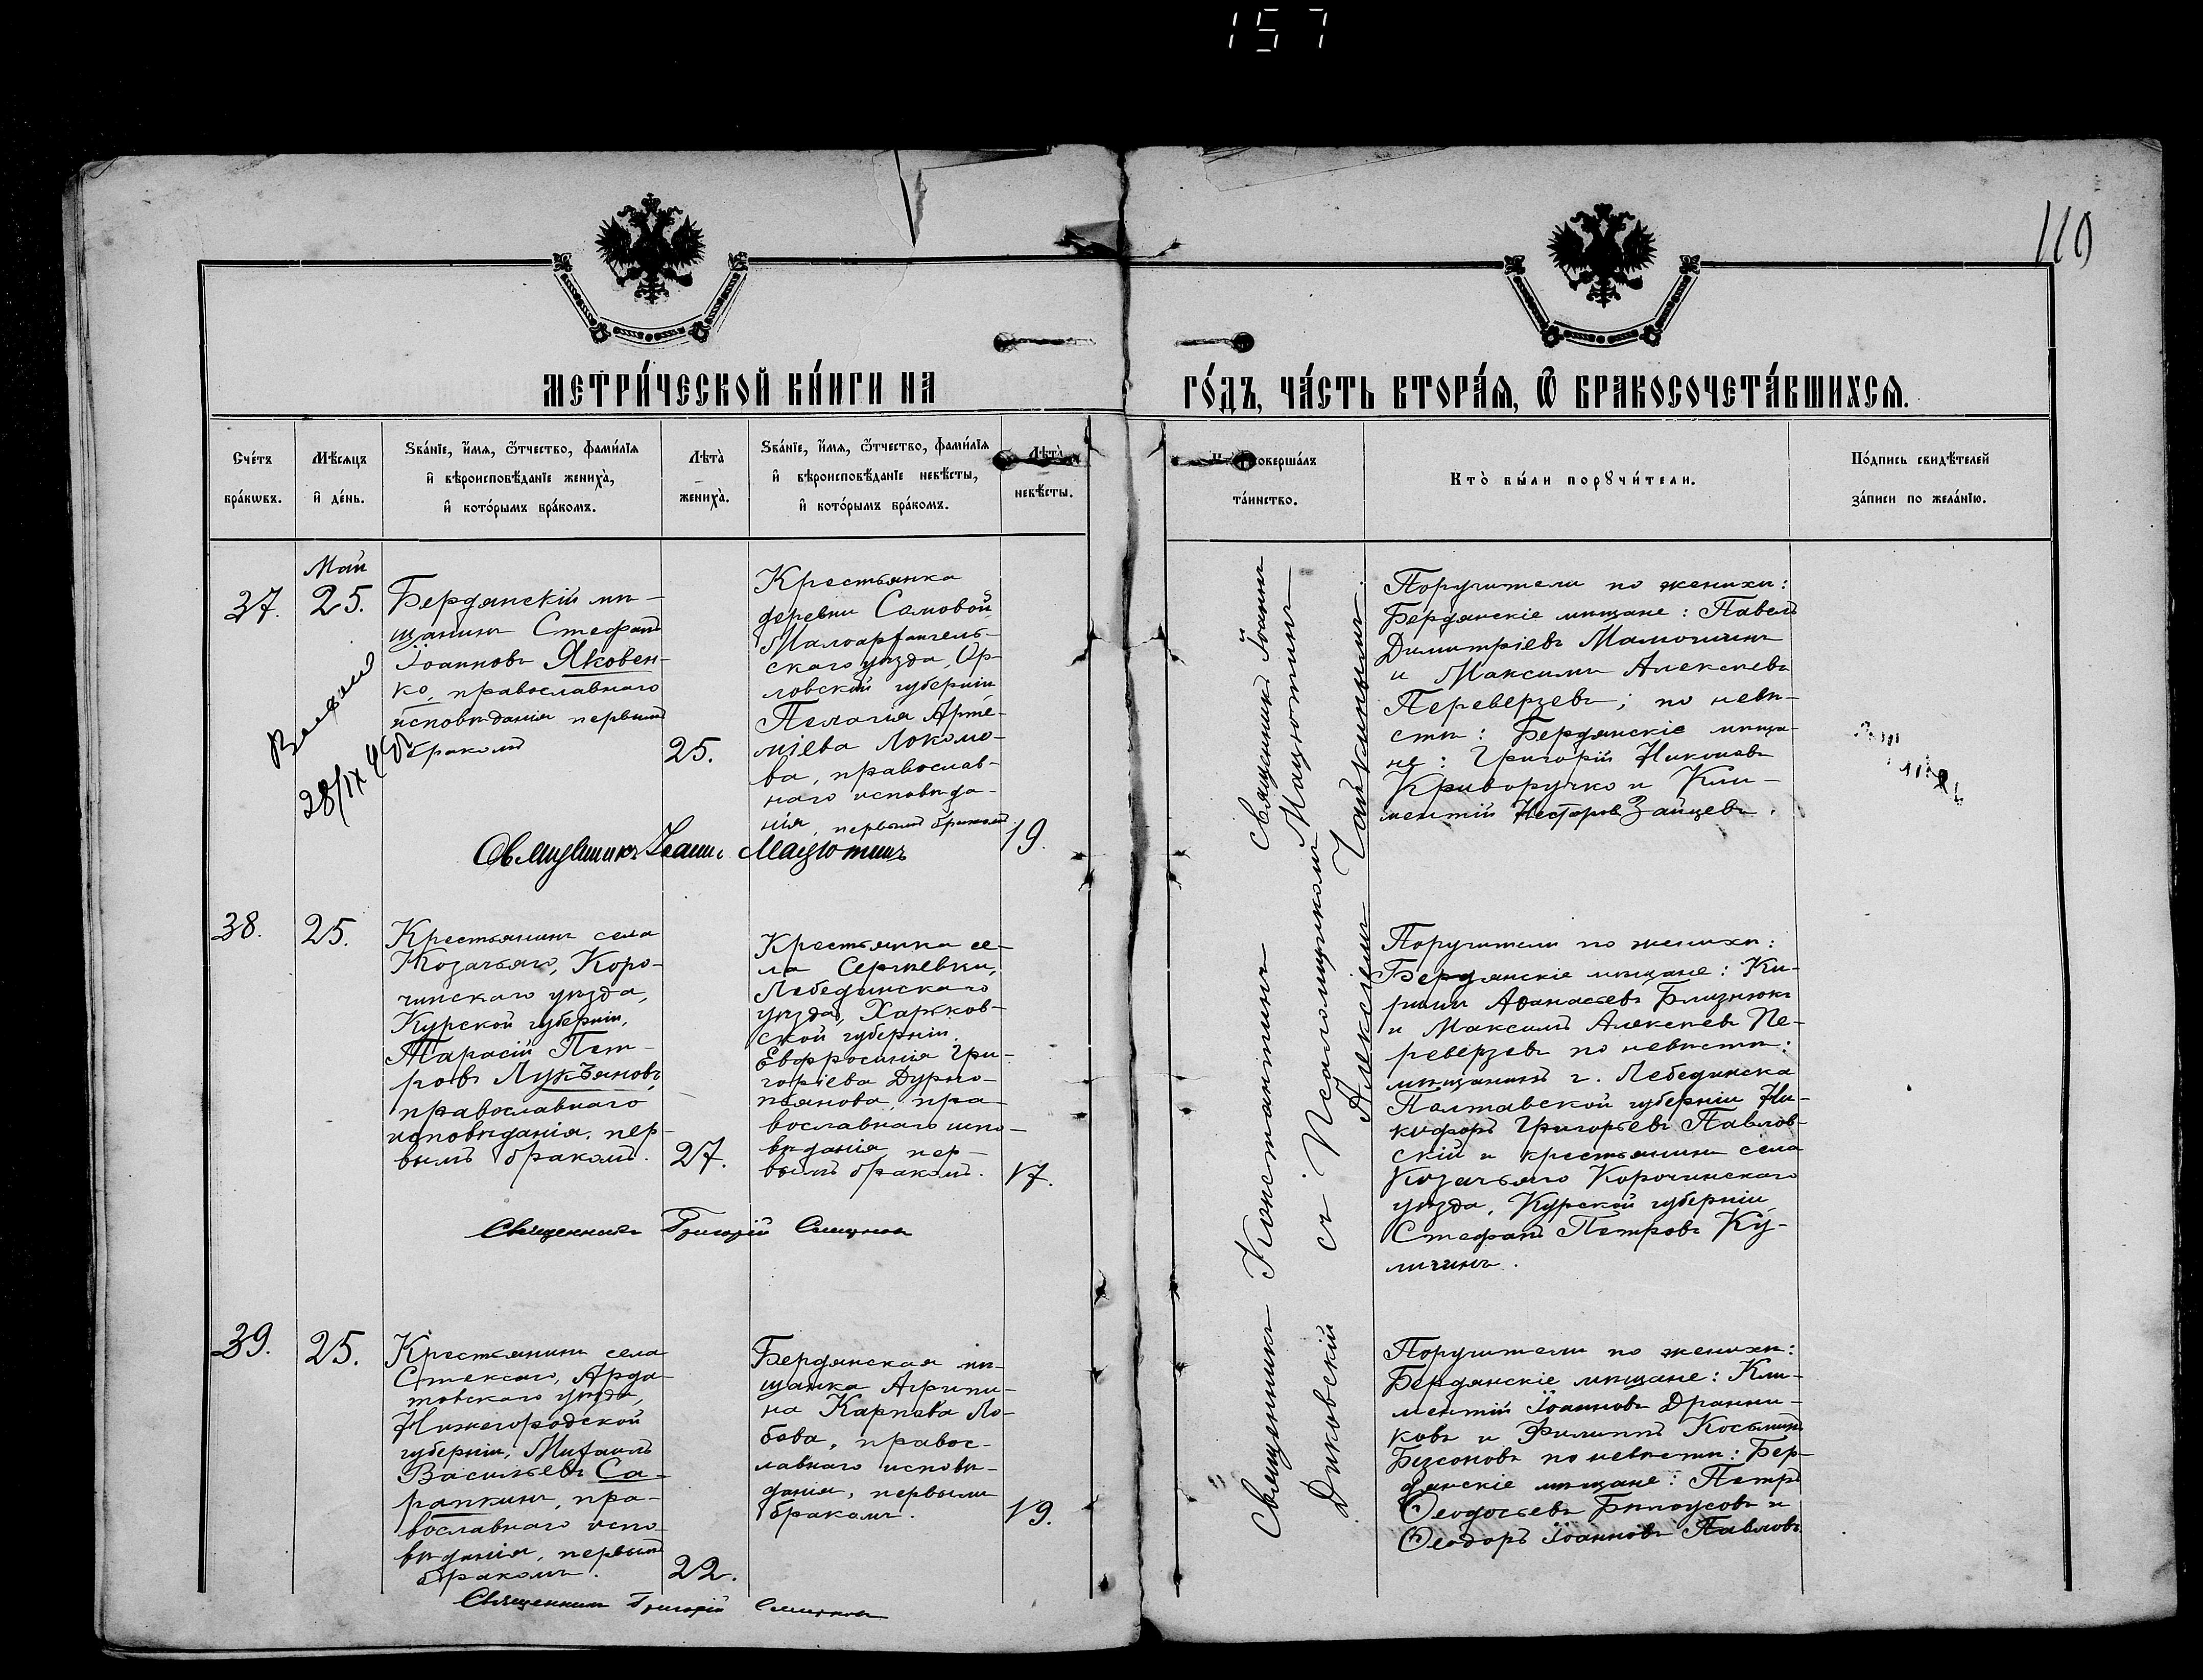 157
110
МЕТРИ́ЧЕСКОЙ КНИ́ГИ НА
ГО́ДЪ, ЧА́СТЬ ВТОРА́Я, Ѿ БРАКОСОЧЕТА́ВШИХСЯ.
Сче́тъ
бра́кωвъ.
Мѣ́сяцъ
и̂ де́нь.
Ѕва́нїе, и́мя, ѻ́тчество, фами́лїя
и̂ вѣроисповѣ́данїе жениха̀,
и̂ кото́рымъ бра́комъ.
Лѣта̀
жениха̀.
Ѕва́нїе, и́мя, ѻ́тчество, фами́лїя
и̂ вѣроисповѣ́данїе невѣ́сты,
и̂ кото́рымъ бра́комъ.
Лѣта̀
невѣ́сты.
соверша́лъ
та́инство.
Кто̀ бы́ли порꙋчи́тели.
По́дпись свидѣ́телей
за́писи по жела́нїю.
37.
Май
25.
28/IX
Бердянскій мѣ-
щанинъ Стефанъ
Іоанновъ Яковен-
ко, православнаго
исповѣданія первымъ
бракомъ
25.
Крестьянка
деревни
Малоархангель-
скаго уѣзда, Ор-
ловской губерніи
Пелагія Арте-
міева Локомо-
ва, православ-
наго исповѣда-
нія, первымъ бракомъ.
19.
Священникъ Іоаннъ Мацютинъ
Поручители по женихѣ:
Бердянскіе мѣщане: Павелъ
Димитріевъ
и Максимъ Алексѣевъ
Переверзевъ; по невѣ-
стѣ: Бердянскіе мѣща-
не: Григорій
Криворучко и Кли-
ментій Несторовъ Зайцевъ.
38.
25.
Крестьянинъ села
Козачьяго, Коро-
чинскаго уѣзда,
Курской губерніи,
Тарасій Пет-
ровъ Лукъяновъ,
православнаго
исповѣданія, пер-
вымъ бракомъ.
27.
Крестьянка се-
ла Сергѣевки,
Лебединскаго
уѣзда, Харьков-
ской губерніи,
Евфросинія Гри-
горіева Дурно-
пьянова, пра-
вославнаго испо-
вѣданія, пер-
вымъ бракомъ.
17.
Священникъ Григорій
Поручители по женихѣ:
Бердянскіе мѣщане: Ки-
риллъ Аѳанасьевъ Близнюкъ
и Максимъ Алексѣевъ Пе-
реверзевъ по невѣстѣ:
мѣщанинъ г. Лебединска
Полтавской губерніи Ни-
кифоръ Григорьевъ Павлов-
скій и крестьянинъ села
Козачьяго Корочинскаго
уѣзда, Курской губерніи
Стефанъ Петровъ Ку-
личинъ.
39.
25.
Крестьянинъ села
Арда-
товскаго уѣзда,
Нижегородской
губерніи, Михаилъ
Васильевъ Са-
рапкинъ, пра-
вославнаго испо-
вѣданія, первымъ
бракомъ.
22.
Бердянская мѣ-
щанка Агрипи-
на Карпова Ло-
бова, правос-
лавнаго исповѣ-
данія, первымъ
бракомъ.
19.
Священникъ Григорій
Поручители по женихѣ:
Бердянскіе мѣщане: Кли-
ментій Іоанновъ Дранни-
ковъ и Филиппъ Косьминъ
Бѣссоновъ по невѣстѣ: Бер-
дянскіе мѣщане: Петръ
Ѳеодосьевъ Бѣлоусовъ и
Ѳеодоръ Іоанновъ Павловъ
Священникъ Константинъ Священникъ Іоаннъ
Диковскій Мацютинъ
съ Псаломщикомъ
Алексіемъ Чайкинымъ